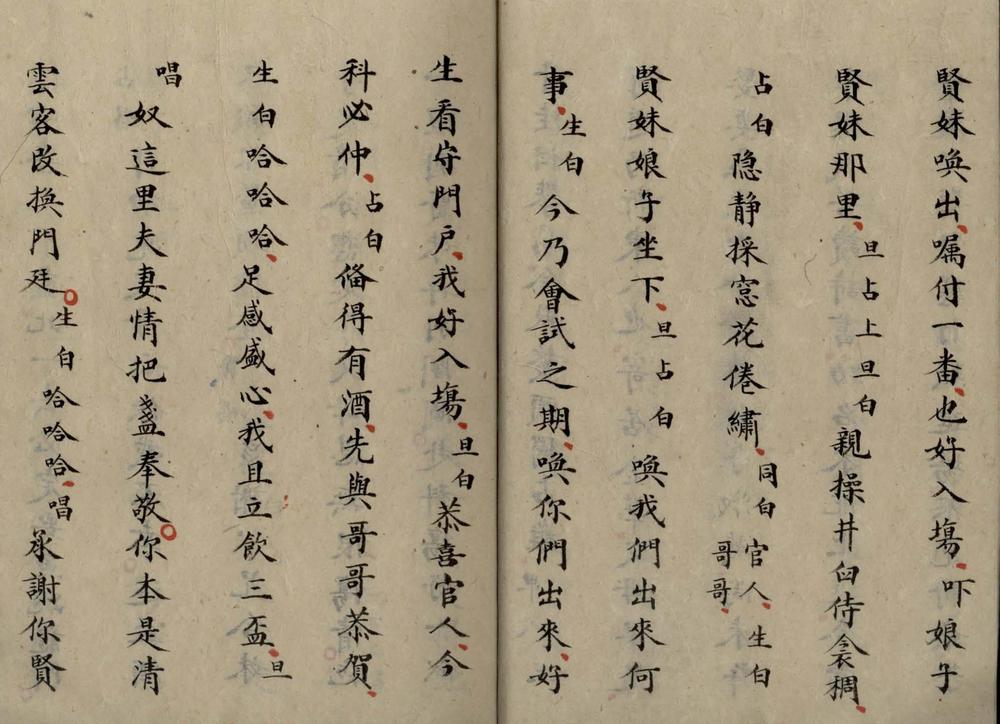 賢妹唤出、嘱付一畨、也好入塲、吓娘子
賢妹那里、旦占上旦白親操井臼侍衾裯、
占白隐静採窓花倦繡、同白官人、哥哥、生白
賢妹娘子坐下、旦占白唤我們出來何
事、生白今乃會試之期、唤你們出來、好
生看守門户、我好入塲、旦白恭喜官人、今
科必仲、占白俻得有酒、先與哥哥恭賀、
生白哈哈哈、足感盛心、我且立飲三盃、旦
唱奴這里夫妻情把盞奉敬○你本是清
雲客改换門廷○生白哈哈哈、唱承謝你賢